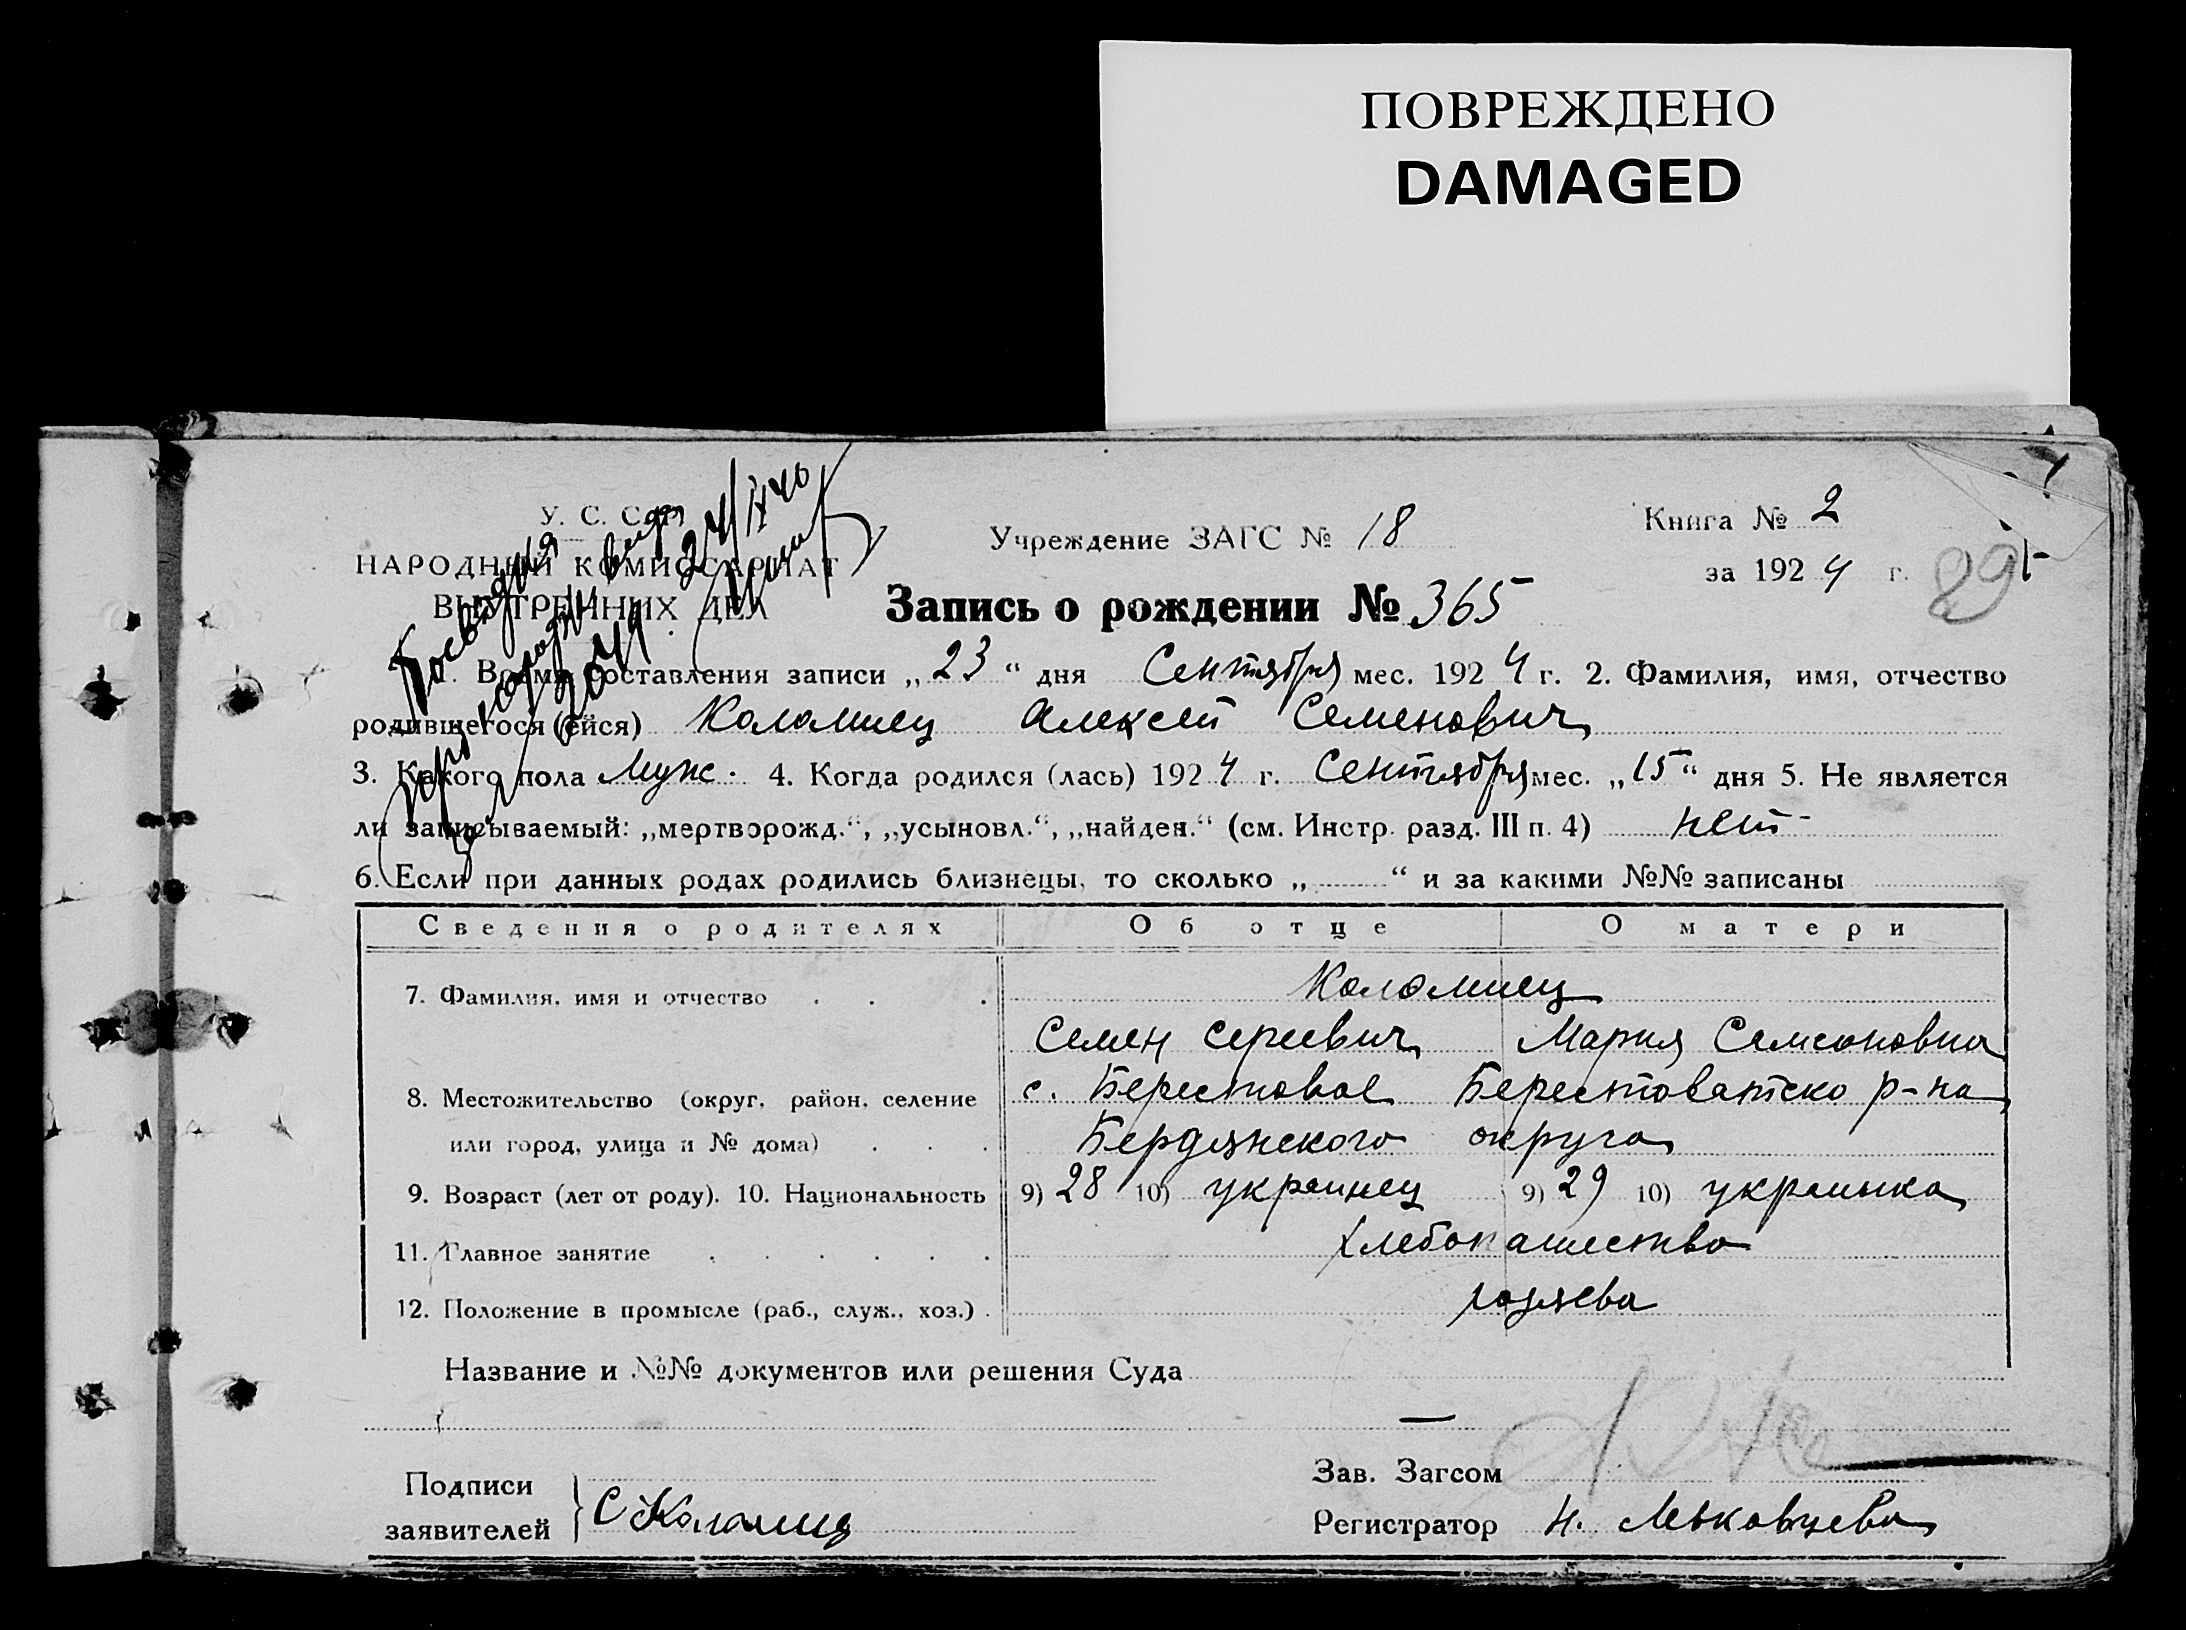 ПОВРЕЖДЕНО
DAMAGED
У. С. С. Р.
НАРОДНЫЙ КОМИССАРИАТ
ВНУТРЕННИХ ДЕЛ
24/IX 40
Учреждение ЗАГС № 18
Книга № 2
за 1924 г.
295
Запись о рождении № 365
1. Время составления записи „23“ дня Сентября мес. 1924 г. 2. Фамилия, имя, отчество
родившегося (ейся) Коломиец Алексей Семенович
3. Какого пола Муж. 4. Когда родился (лась) 1924 г. Сентября мес. „15“ дня 5. Не является
ли записываемый: „мертворожд.“, „усыновл.“, „найден.“ (см. Инстр. разд. III п. 4) нет
6. Если при данных родах родились близнецы, то сколько „ “ и за какими №№ записаны
Сведения о родителях Об отце О матери
7. Фамилия, имя и отчество Коломиец
Семен Сергеевич Мария Семеновна
8. Местожительство (округ, район, селение с. Берестовое Берестоватско р-на
или город, улица и № дома) Бердянского округа
9. Возраст (лет от роду). 10. Национальность 9) 28 10) украинец 9) 29 10) украинка
11. Главное занятие хлебопашество
12. Положение в промысле (раб., служ., хоз.)
Название и №№ документов или решения Суда
—
Подписи
заявителей С Коломиец
Зав. Загсом
Регистратор Н.